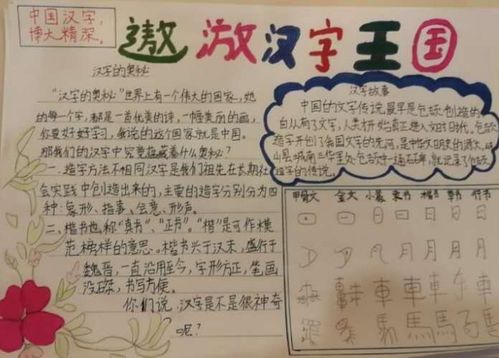 中国汉字,
博大精深。
遨游汉字王国
汉字的奥秘
"汉字的奥秘"世界上有一个伟大的国家,她
的每一个字,都是一首优美的诗,一幅美丽的画,
你要好好学习,我说的这个国家就是中国。
那我们的汉字中究竟蕴藏着什么奥秘?
一.造字方法不相同汉字是我们祖先在长期社
会实践中创造出来的,主要的造字分别分为四
种:象形、指事、会意、形声。
二、楷书也称"真书"、"正书"。"楷"是可作模
范榜样的意思。楷书兴于汉末,盛行于
魏晋,一直沿用至今,字形方正,笔画
没正踩,书写方便。
你们说,汉字是不是很神奇
呢?
汉字故事
中国的文字传说最早是包括创造的,
自从有了文字,人类才开始真正进入文明时代。仓颉
造字开创了我国文字的先河,是中华文明史的源头,
山县城南
造字的传说。
甲骨文 金文 小篆 隶书 楷书 草书 行书
日 日 日 日 日
月 月 月 月
車 車 車 車 車
馬 馬 馬